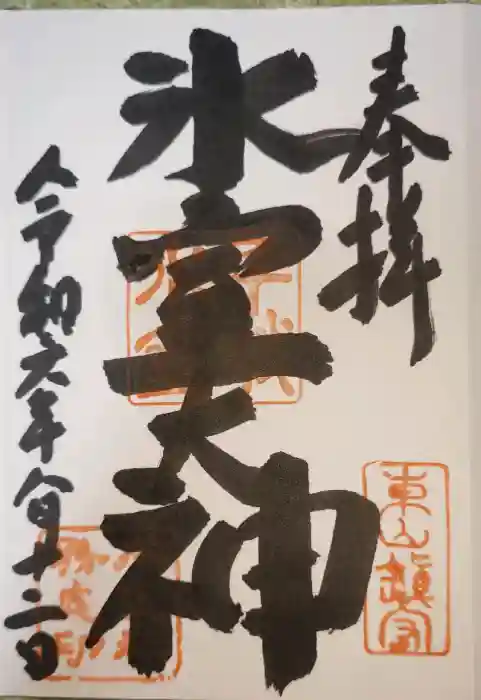 奉拝
東山鎮守
氷室大神
令和六年八月十二日